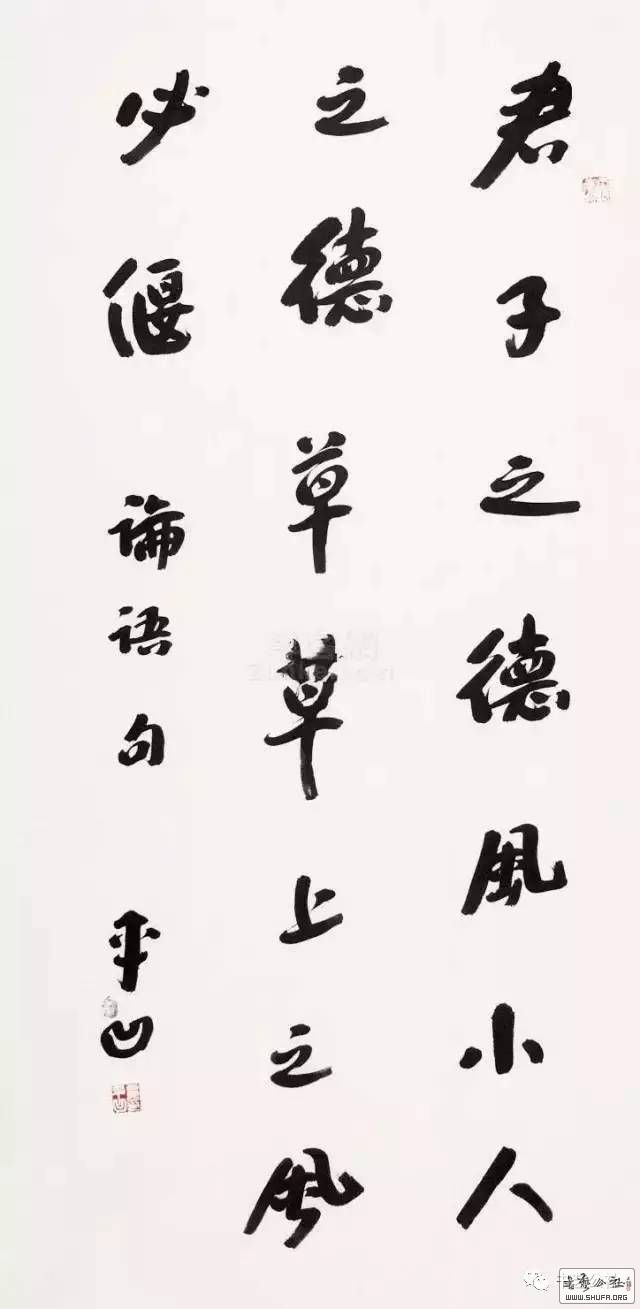 君子之德風小人
之德草草上之風
必偃 論語句 平凹
WWW.SHUFA.ORG